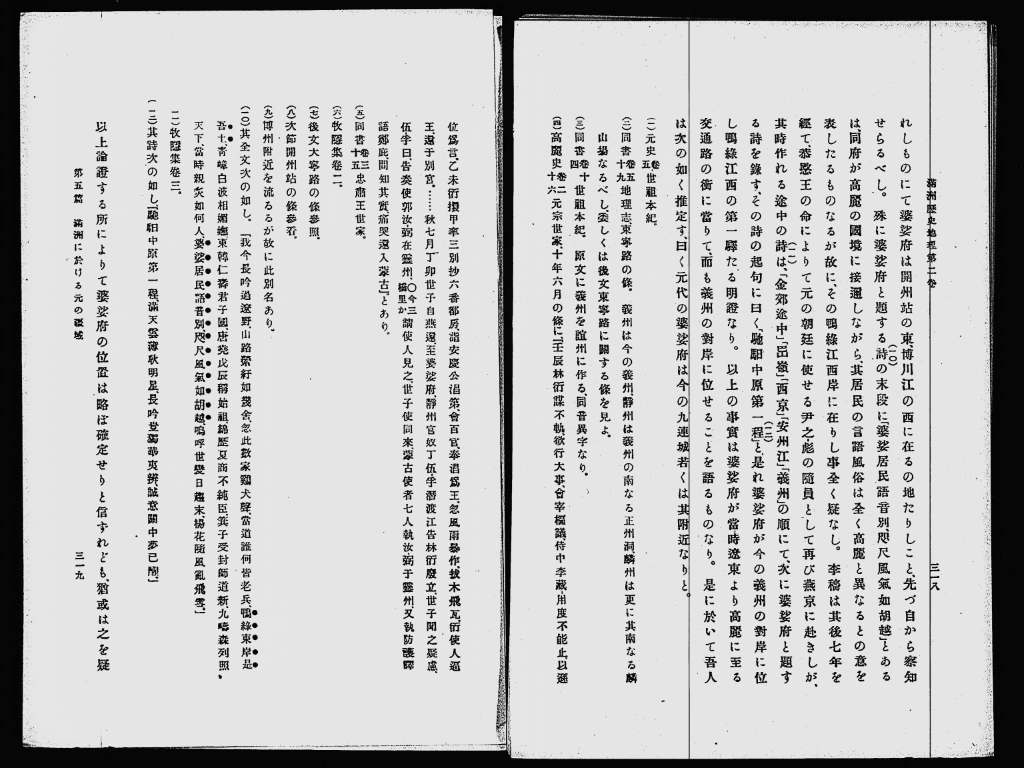 滿洲歷史地理第二卷
三一八
れしものにて婆娑府は開州站の東、博川江の西に在るの地たりしこと、先づ自から察知
せらるべし。殊に婆娑府と題する詩の末段に「婆娑居民語音別、咫尺風氣如胡越」とある
(一〇)
は同府が高麗の國境に接邇しながら、其居民の言語風俗は全く高麗と異なるとの意を
表したるものなるが故に、その鴨綠江西岸に在りし事全く疑なし。李穡は其後七年を
經て、恭愍王の命によりて元の朝廷に使せる尹之彪の隨員として再び燕京に赴きしが、
其時作れる途中の詩は、「金郊途中」「岊嶺」「西京」「安州江」「義州」の順にて、次に婆娑府と題す
(一一)
る詩を錄す、その詩の起句に曰く、「馳馹中原第一程」と、是れ婆娑府が今の義州の對岸に位
(一二)
し鴨綠江西の第一驛たる明證なり。以上の事實は婆娑府が當時遼東より高麗に至る
交通路の衝に當りて、而も義州の對岸に位せることを語るものなり。是に於いて吾人
は次の如く推定す、曰く元代の婆娑府は今の九連城若くは其附近なりと。
(一)元史卷五世祖本紀。
(二)同書卷五十九地理志東寧路の條。義州は今の義州、靜州は義州の南なる正州洞、麟州は更に其南なる麟
山場なるべし、委しくは後文東寧路に關する條を見よ。
(三)同書卷十四世祖本紀。原文に義州を誼州に作る、同音異字なり。
(四)高麗史卷二十六元宗世家、十年六月の條に、「壬辰林衍謀不軌、欲行大事、會宰樞議、侍中李藏用度不能止、以遜
位爲言、乙未衍擐甲率三別抄六番都房詣安慶公淐第、會百官奉淐爲王、忽風雨暴作、拔木飛瓦、衍使人逼
王、遷于別宮。……秋七月丁卯世子自燕還、至婆娑府、靜州官奴丁伍孚潛渡江告林衍廢立、世子聞之疑慮、
伍孚曰告奏使郭汝弼在靈州、〇今三橋里か請使人見之、世子使同來蒙古使者七人執汝弼于靈州、又執防護譯
語鄭庇問知其實、痛哭還入蒙古」とあり。
(五)同書卷三十五忠肅王世家。
(六)牧隱集卷二。
(七)後文大寧路の條參照。
(八)次節開州站の條參看。
(九)博州附近を流るるが故に此別名あり。
(一〇)其全文次の如し。「我今長吟過遼野、山路縈紆如幾舍、忽此數家鷄犬聲、當道誰何皆老兵、鴨綠東岸是
吾土、靑嶂白波相媚嫵、東韓仁壽君子國、唐堯戊辰稱始祖、綿歷夏商不純臣、箕子受封師道新、九疇森列照
天下、當時親炙如何人、婆娑居民語音別、咫尺風氣如胡越、嗚呼世變日趨末、楊花隨風亂飛雪」
(一一)牧隱集卷三。
(一二)其詩次の如し、「馳馹中原第一程、滿天雲薄耿明星、長吟登獨華夷辨、誠意關中夢已醒」
以上論證する所によりて婆娑府の位置は略ぼ確定せりと信ずれども、猶或は之を疑
第五篇 滿洲に於ける元の疆域
三一九